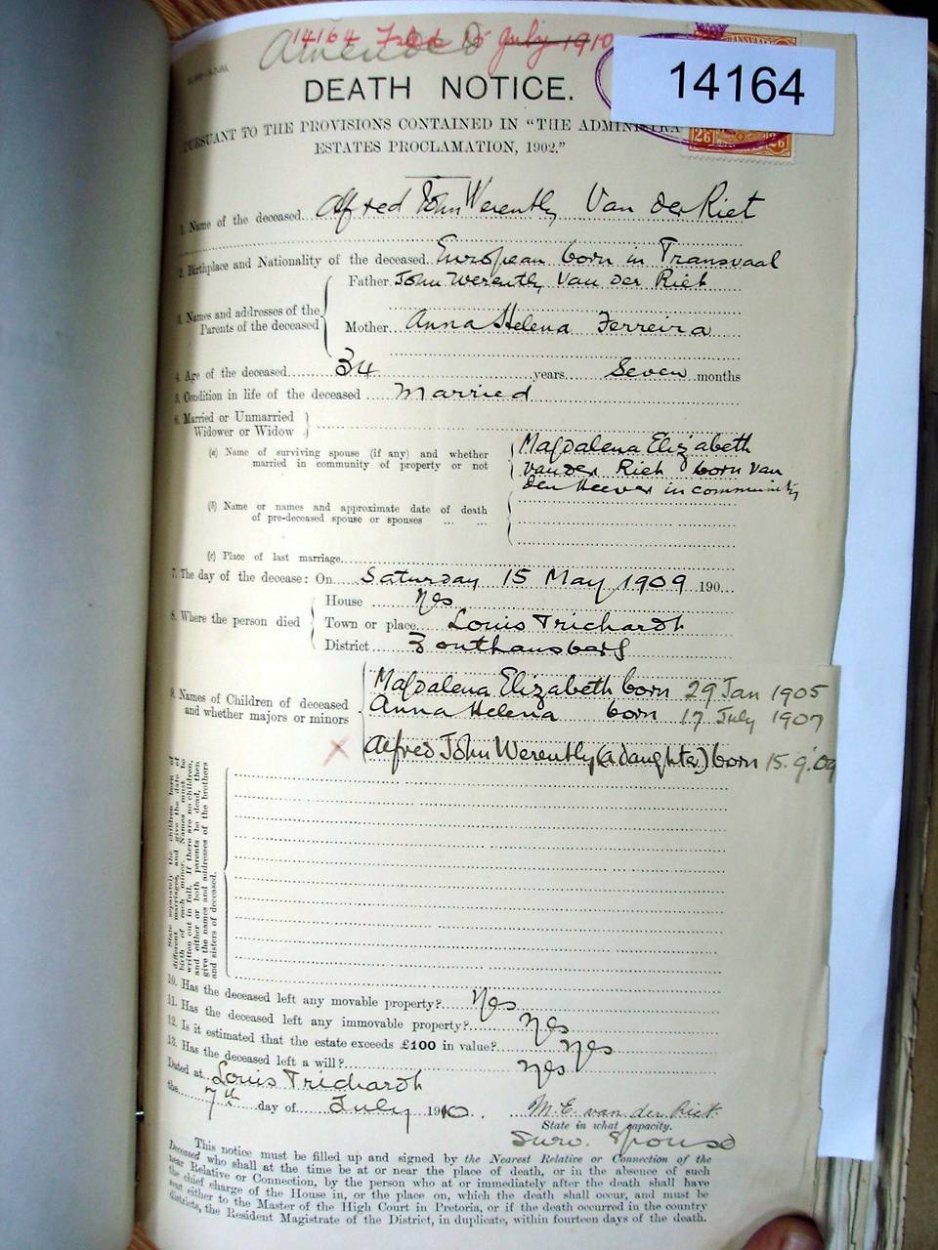 14164 Filed 15 July 1910
Amended
14164
DEATH NOTICE.
PURSUANT TO THE PROVISIONS CONTAINED IN "THE ADMINISTRA
ESTATES PROCLAMATION, 1902."
TRANSVAAL
2/6 2/6
1. Name of the deceased Alfred John Werently Van der Riet
2. Birthplace and Nationality of the deceased European born in Transvaal
3. Names and addresses of the Parents of the deceased
Father John Werently Van der Riet
Mother Anna Helena Ferreira
4. Age of the deceased 34 years Seven months
5. Condition in life of the deceased Married
6. Married or Unmarried
Widower or Widow
(a) Name of surviving spouse (if any) and whether married in community of property or not
Magdalena Elizabeth
van der Riet born Van
den Heever in community
(b) Name or names and approximate date of death of pre-deceased spouse or spouses ... ...
(c) Place of last marriage
7. The day of the decease: On Saturday 15 May 1909 190
8. Where the person died
House Yes
Town or place Louis Trichardt
District Zoutpansberg
9. Names of Children of deceased and whether majors or minors
Magdalena Elizabeth born 29 Jan 1905
Anna Helena born 17 July 1907
X Alfred John Werently (a daughter) born 15.9.09
State separately the children born of
different marriages, and give the date of
birth of each minor. Names must be
written out in full. If there are no children,
and either or both parents be dead, then
give the names and addresses of the brothers
and sisters of deceased.
10. Has the deceased left any movable property? Yes
11. Has the deceased left any immovable property? Yes
12. Is it estimated that the estate exceeds £100 in value? Yes
13. Has the deceased left a will? Yes
Dated at Louis Trichardt
the 7th day of July 1910.
M. E. van der Riet
State in what capacity.
Surv. Spouse
This notice must be filled up and signed by the Nearest Relative or Connection of the
Deceased who shall at the time be at or near the place of death, or in the absence of such
near Relative or Connection, by the person who at or immediately after the death shall have
the chief charge of the House in, or the place on, which the death shall occur, and must be
sent either to the Master of the High Court in Pretoria, or if the death occurred in the country
districts, the Resident Magistrate of the District, in duplicate, within fourteen days of the death.